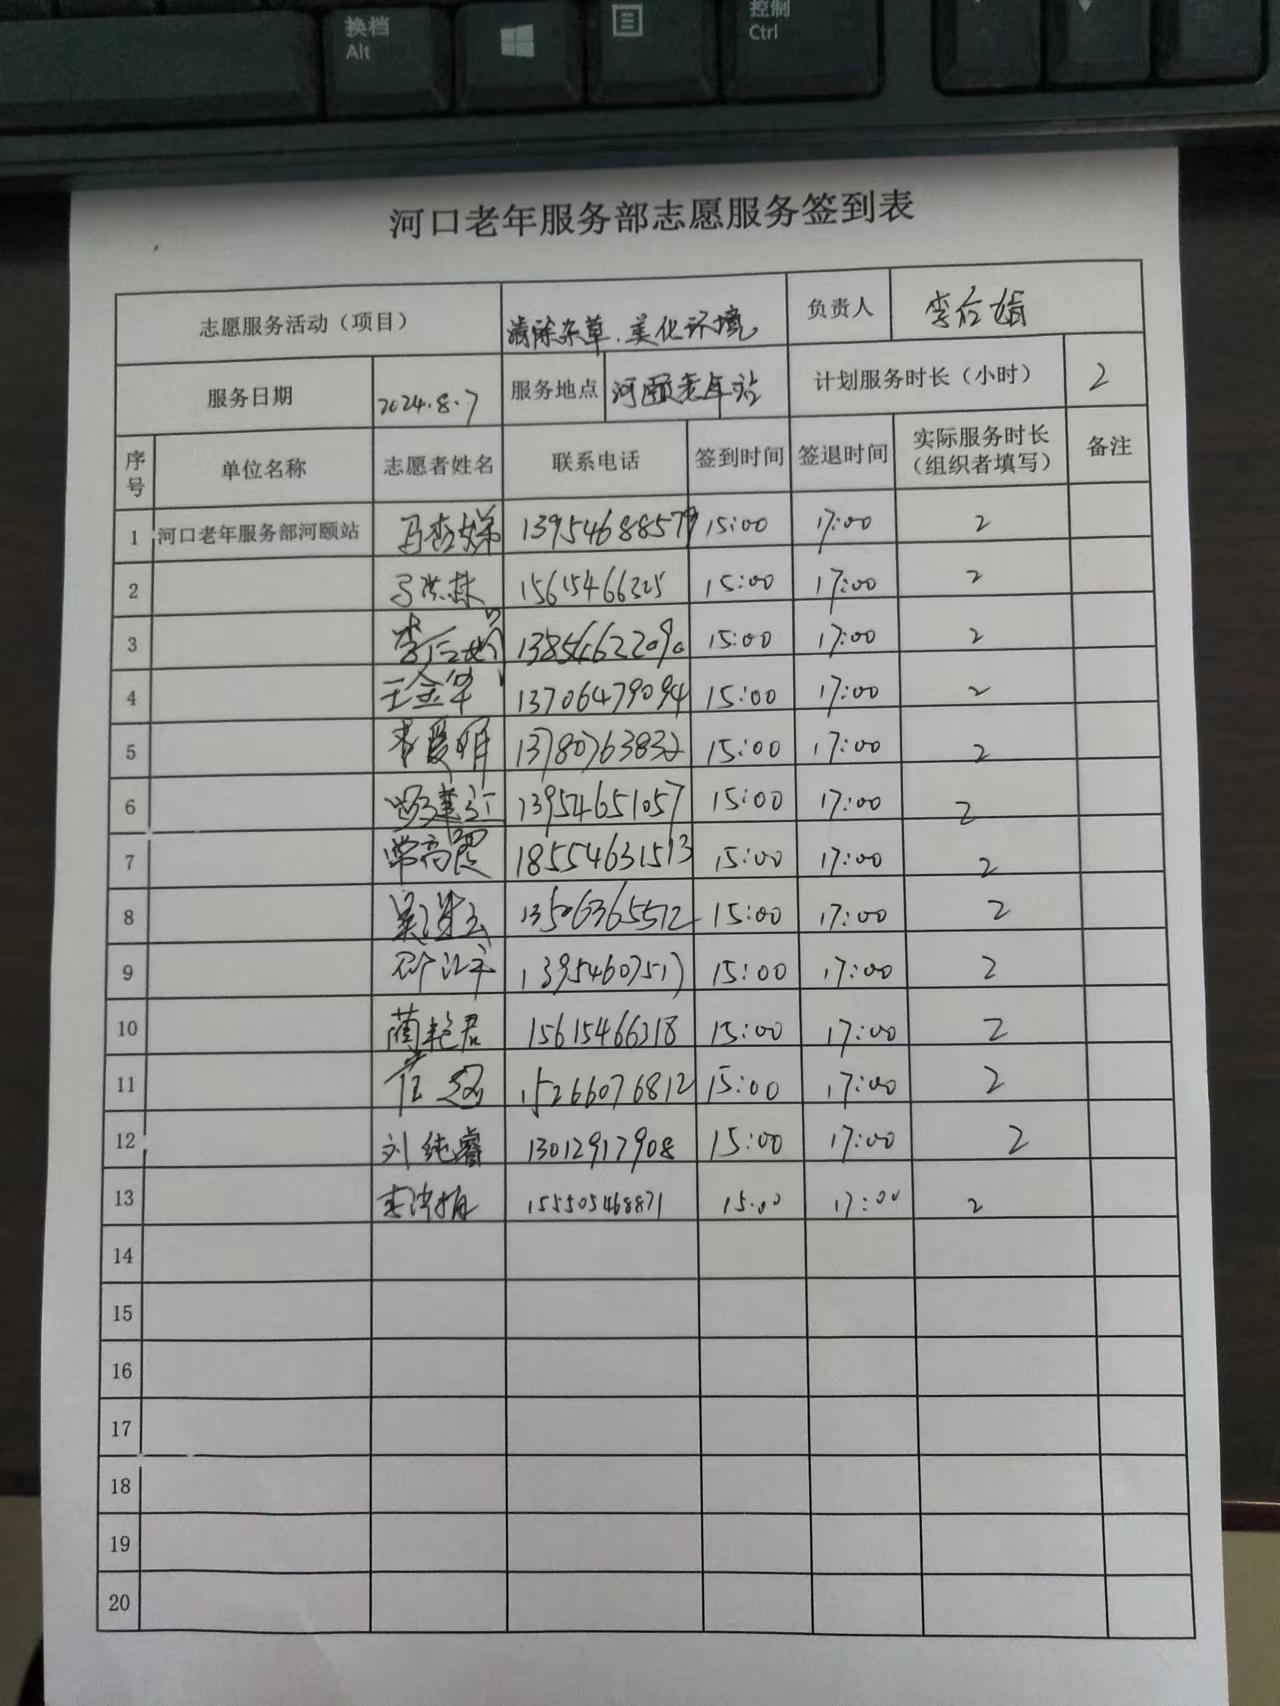 换档
Alt
控制
Ctrl
河口老年服务部志愿服务签到表
志愿服务活动（项目） 清除杂草.美化环境 负责人 李后娟
服务日期 2024.8.7 服务地点 河颐老年站 计划服务时长（小时） 2
序号 单位名称 志愿者姓名 联系电话 签到时间 签退时间 实际服务时长（组织者填写） 备注
1 河口老年服务部河颐站 马杏娣 13954688579 15:00 17:00 2
2 15615466325 15:00 17:00 2
3 李后娟 13854622090 15:00 17:00 2
4 王金华 13706479094 15:00 17:00 2
5 李爱明 13780763832 15:00 17:00 2
6 13954651057 15:00 17:00 2
7 常高霞 18554631513 15:00 17:00 2
8 13506365512 15:00 17:00 2
9 13954607517 15:00 17:00 2
10 蔺艳君 15615466318 15:00 17:00 2
11 15266076812 15:00 17:00 2
12 刘纯睿 13012917908 15:00 17:00 2
13 155505468871 15:00 17:00 2
14
15
16
17
18
19
20